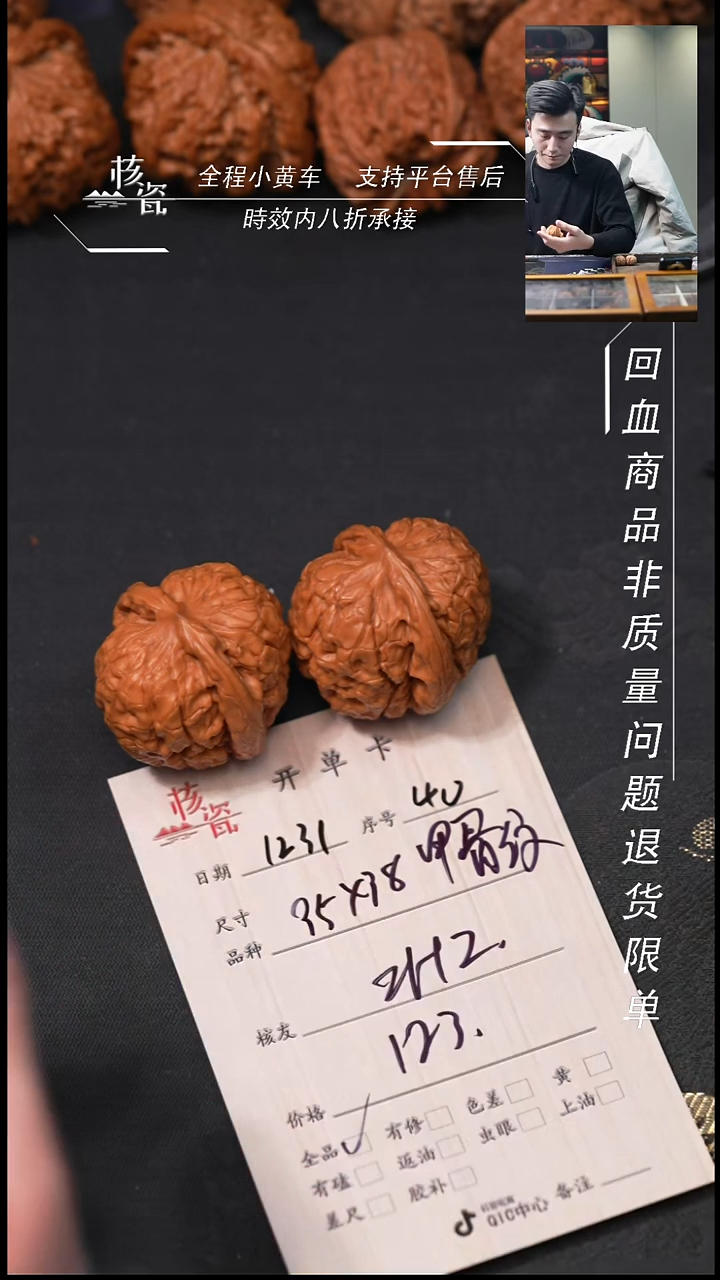 核瓷
全程小黄车 支持平台售后
時效内八折承接
回血商品非质量问题退货限单
开单卡
核瓷
日期 1231 序号 40
尺寸 35X38 甲骨纹
品种
核友
123.
价格
全品 有修 色差 黄
有磕 返油 虫眼 上油
差尺 胶补
QIC中心 备注